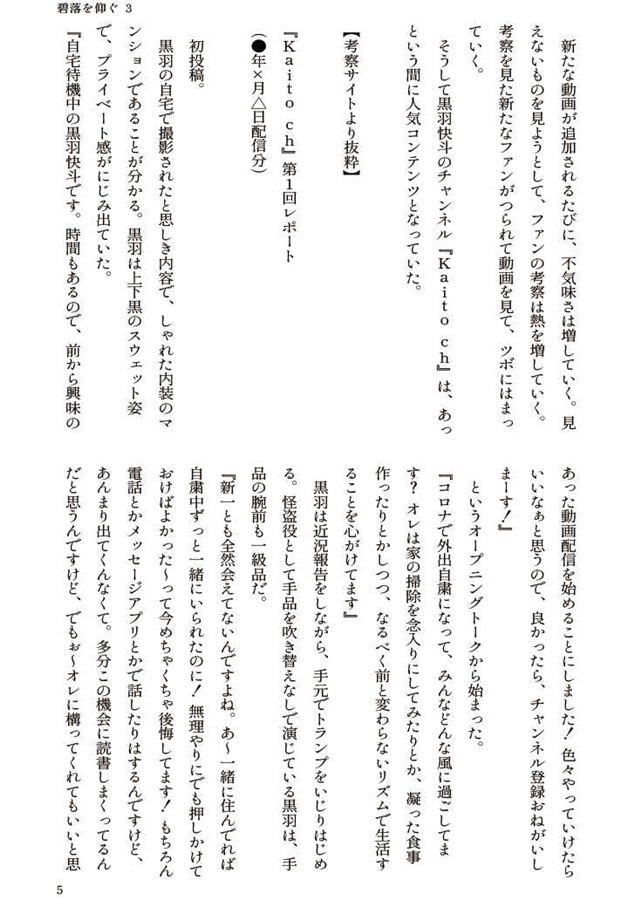 碧落を仰ぐ 3
新たな動画が追加されるたびに、不気味さは増していく。見
えないものを見ようとして、ファンの考察は熱を増していく。
考察を見た新たなファンがつられて動画を見て、ツボにはまっ
ていく。
そうして黒羽快斗のチャンネル『Kaito ch』は、あっ
という間に人気コンテンツとなっていた。
【考察サイトより抜粋】
『Kaito ch』第1回レポート
(●年×月△日配信分)
初投稿。
黒羽の自宅で撮影されたと思しき内容で、しゃれた内装のマ
ンションであることが分かる。黒羽は上下黒のスウェット姿
で、プライベート感がにじみ出ていた。
『自宅待機中の黒羽快斗です。時間もあるので、前から興味の
あった動画配信を始めることにしました! 色々やっていけたら
いいなぁと思うので、良かったら、チャンネル登録おねがいし
まーす!』
というオープニングトークから始まった。
『コロナで外出自粛になって、みんなどんな風に過ごしてま
す? オレは家の掃除を念入りにしてみたりとか、凝った食事
作ったりとかしつつ、なるべく前と変わらないリズムで生活す
ることを心がけてます』
黒羽は近況報告をしながら、手元でトランプをいじりはじめ
る。怪盗役として手品を吹き替えなしで演じている黒羽は、手
品の腕前も一級品だ。
『新一とも全然会えてないんですよね。あ〜一緒に住んでれば
自粛中ずっと一緒にいられたのに! 無理やりにでも押しかけて
おけばよかった〜って今めちゃくちゃ後悔してます! もちろん
電話とかメッセージアプリとかで話したりはするんですけど、
あんまり出てくんなくて。多分この機会に読書しまくってるん
だと思うんですけど、でもぉ〜オレに構ってくれてもいいと思
5